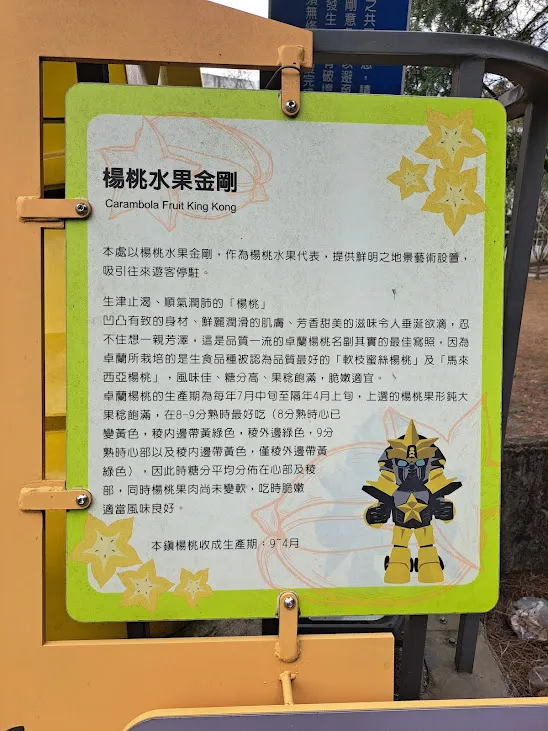 楊桃水果金剛
Carambola Fruit King Kong
本處以楊桃水果金剛，作為楊桃水果代表，提供鮮明之地景藝術設置，
吸引往來遊客停駐。
生津止渴、順氣潤肺的「楊桃」
凹凸有致的身材、鮮麗潤滑的肌膚、芳香甜美的滋味令人垂涎欲滴，忍
不住想一親芳澤，這是品質一流的卓蘭楊桃名副其實的最佳寫照，因為
卓蘭所栽培的是生食品種被認為品質最好的「軟枝蜜絲楊桃」及「馬來
西亞楊桃」，風味佳、糖分高、果稔飽滿，脆嫩適宜。
卓蘭楊桃的生產期為每年7月中旬至隔年4月上旬，上選的楊桃果形鈍大
果稔飽滿，在8-9分熟時最好吃（8分熟時心已
變黃色，稜內邊帶黃綠色，稜外邊綠色，9分
熟時心部以及稜內邊帶黃色，僅稜外邊帶黃
綠色），因此時糖分平均分佈在心部及稜
部，同時楊桃果肉尚未變軟，吃時脆嫩
適當風味良好。
本鎮楊桃收成生產期：9~4月